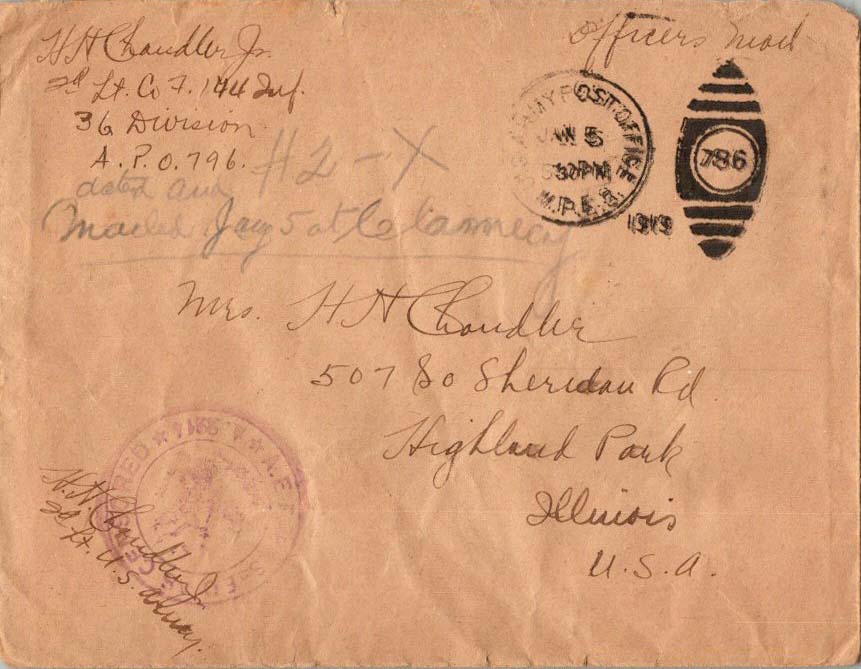 H H Chandler Jr.
2d Lt. Co F. 144 Inf.
36 Division
A. P. O. 796.
Officers Mail
ARMY POST OFFICE
JAN 5
530PM
M.P.E.S.
1919
786
#2 - X
dated and
Mailed Jany 5 at Clamecy
Mrs. H H Chandler
507 So Sheridan Rd
Highland Park
Illinois
U. S. A.
A.E.F.
CENSORED
H. H Chandler Jr.
2d Lt. U. S. Army.